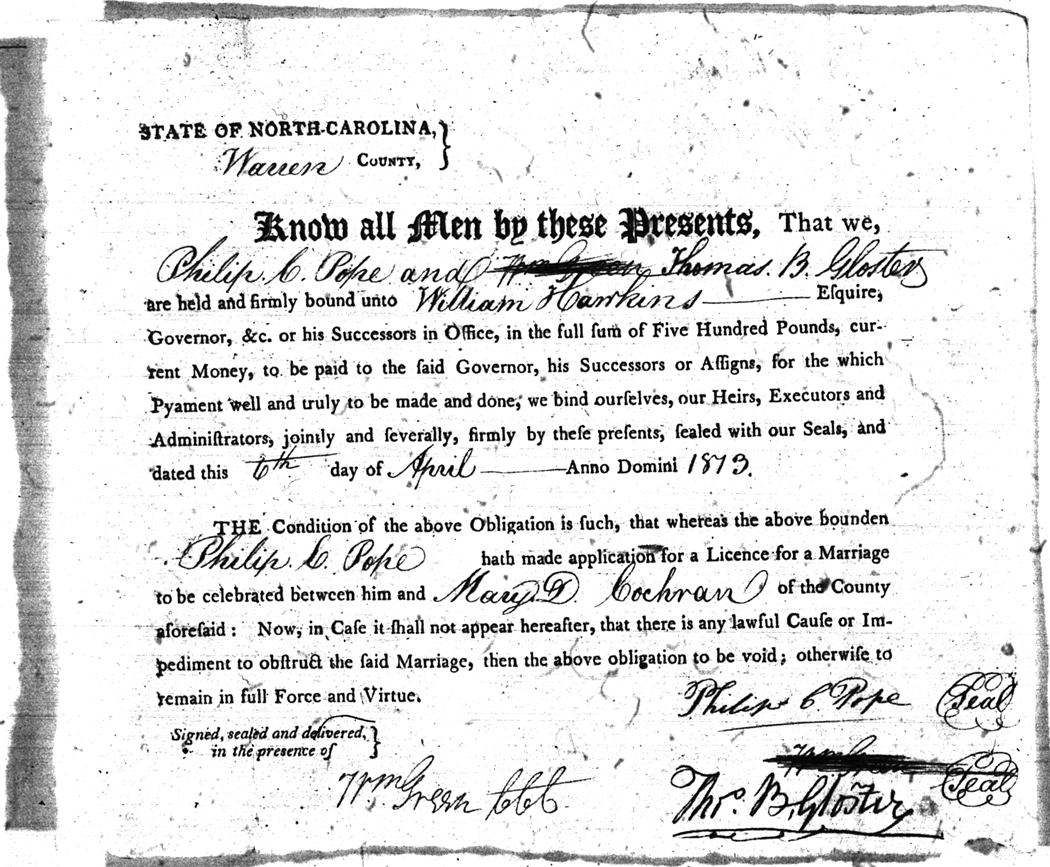 STATE OF NORTH-CAROLINA,
Warren COUNTY,
Know all Men by these Presents, That we,
Philip C. Pope and Thomas B. Gloster
are held and firmly bound unto William Hawkins Esquire,
Governor, &c. or his Successors in Office, in the full ſum of Five Hundred Pounds, cur-
rent Money, to be paid to the ſaid Governor, his Successors or Aſſigns, for the which
Pyament well and truly to be made and done, we bind ourſelves, our Heirs, Executors and
Adminiſtrators, jointly and ſeverally, firmly by theſe preſents, ſealed with our Seals, and
dated this 6th day of April Anno Domini 1813.
THE Condition of the above Obligation is ſuch, that whereas the above bounden
Philip C. Pope hath made application for a Licence for a Marriage
to be celebrated between him and Mary D. Cochran of the County
aforeſaid: Now, in Caſe it ſhall not appear hereafter, that there is any lawful Cauſe or Im-
pediment to obſtruct the ſaid Marriage, then the above obligation to be void; otherwiſe to
remain in full Force and Virtue.
Philip C Pope Seal
Signed, sealed and delivered,
in the presence of
Wm Green CCC
Thos. B. Gloster Seal